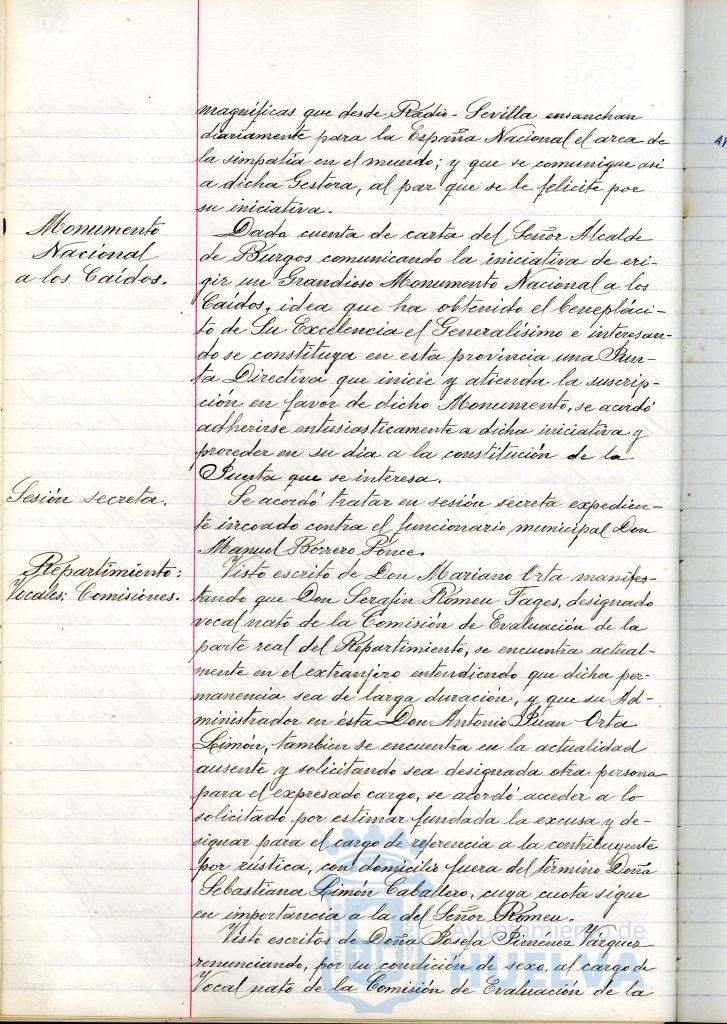 magníficas que desde Radio-Sevilla ensanchan
diariamente para la España Nacional el area de
la simpatia en el mundo; y que se comunique asi
a dicha Gestora, al par que se le felicite por
su iniciativa.
Monumento
Nacional
a los Caídos.
Dada cuenta de carta del Señor Alcalde
de Burgos comunicando la iniciativa de eri-
gir un Grandioso Monumento Nacional a los
Caídos, idea que ha obtenido el beneplaci-
to de Su Excelencia el Generalísimo e interesan-
do se constituya en esta provincia una Jun-
ta Directiva que inicie y atienda la suscrip-
ción en favor de dicho Monumento, se acordó
adherirse entusiasticamente a dicha iniciativa y
proceder en su dia a la constitución de la
Junta que se interesa.
Sesión secreta.
Se acordó tratar en sesión secreta expedien-
te incoado contra el funcionario municipal Don
Manuel Borrero Ponce.
Repartimiento:
Vocales: Comisiones.
Visto escrito de Don Mariano Orta manifes-
tando que Don Serafin Romeu Fages, designado
vocal nato de la Comisión de Evaluación de la
parte real del Repartimiento, se encuentra actual-
mente en el extranjero entendiendo que dicha per-
manencia sea de larga duración, y que su Ad-
ministrador en esta Don Antonio Juan Orta
Limón, tambien se encuentra en la actualidad
ausente y solicitando sea designada otra persona
para el expresado cargo, se acordó acceder a lo
solicitado por estimar fundada la excusa y de-
signar para el cargo de referencia a la contribuyente
por rústica, con domicilio fuera del término Doña
Sebastiana Limón Caballero, cuya cuota sigue
en importancia a la del Señor Romeu.
Visto escritos de Doña Josefa Jimenez Vázquez
renunciando, por su condición de sexo, al cargo de
Vocal nato de la Comisión de Evaluación de la
Ayuntamiento de
HUELVA